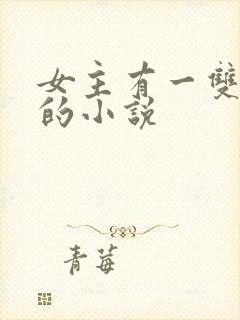 女主有一雙
的小説
青莓